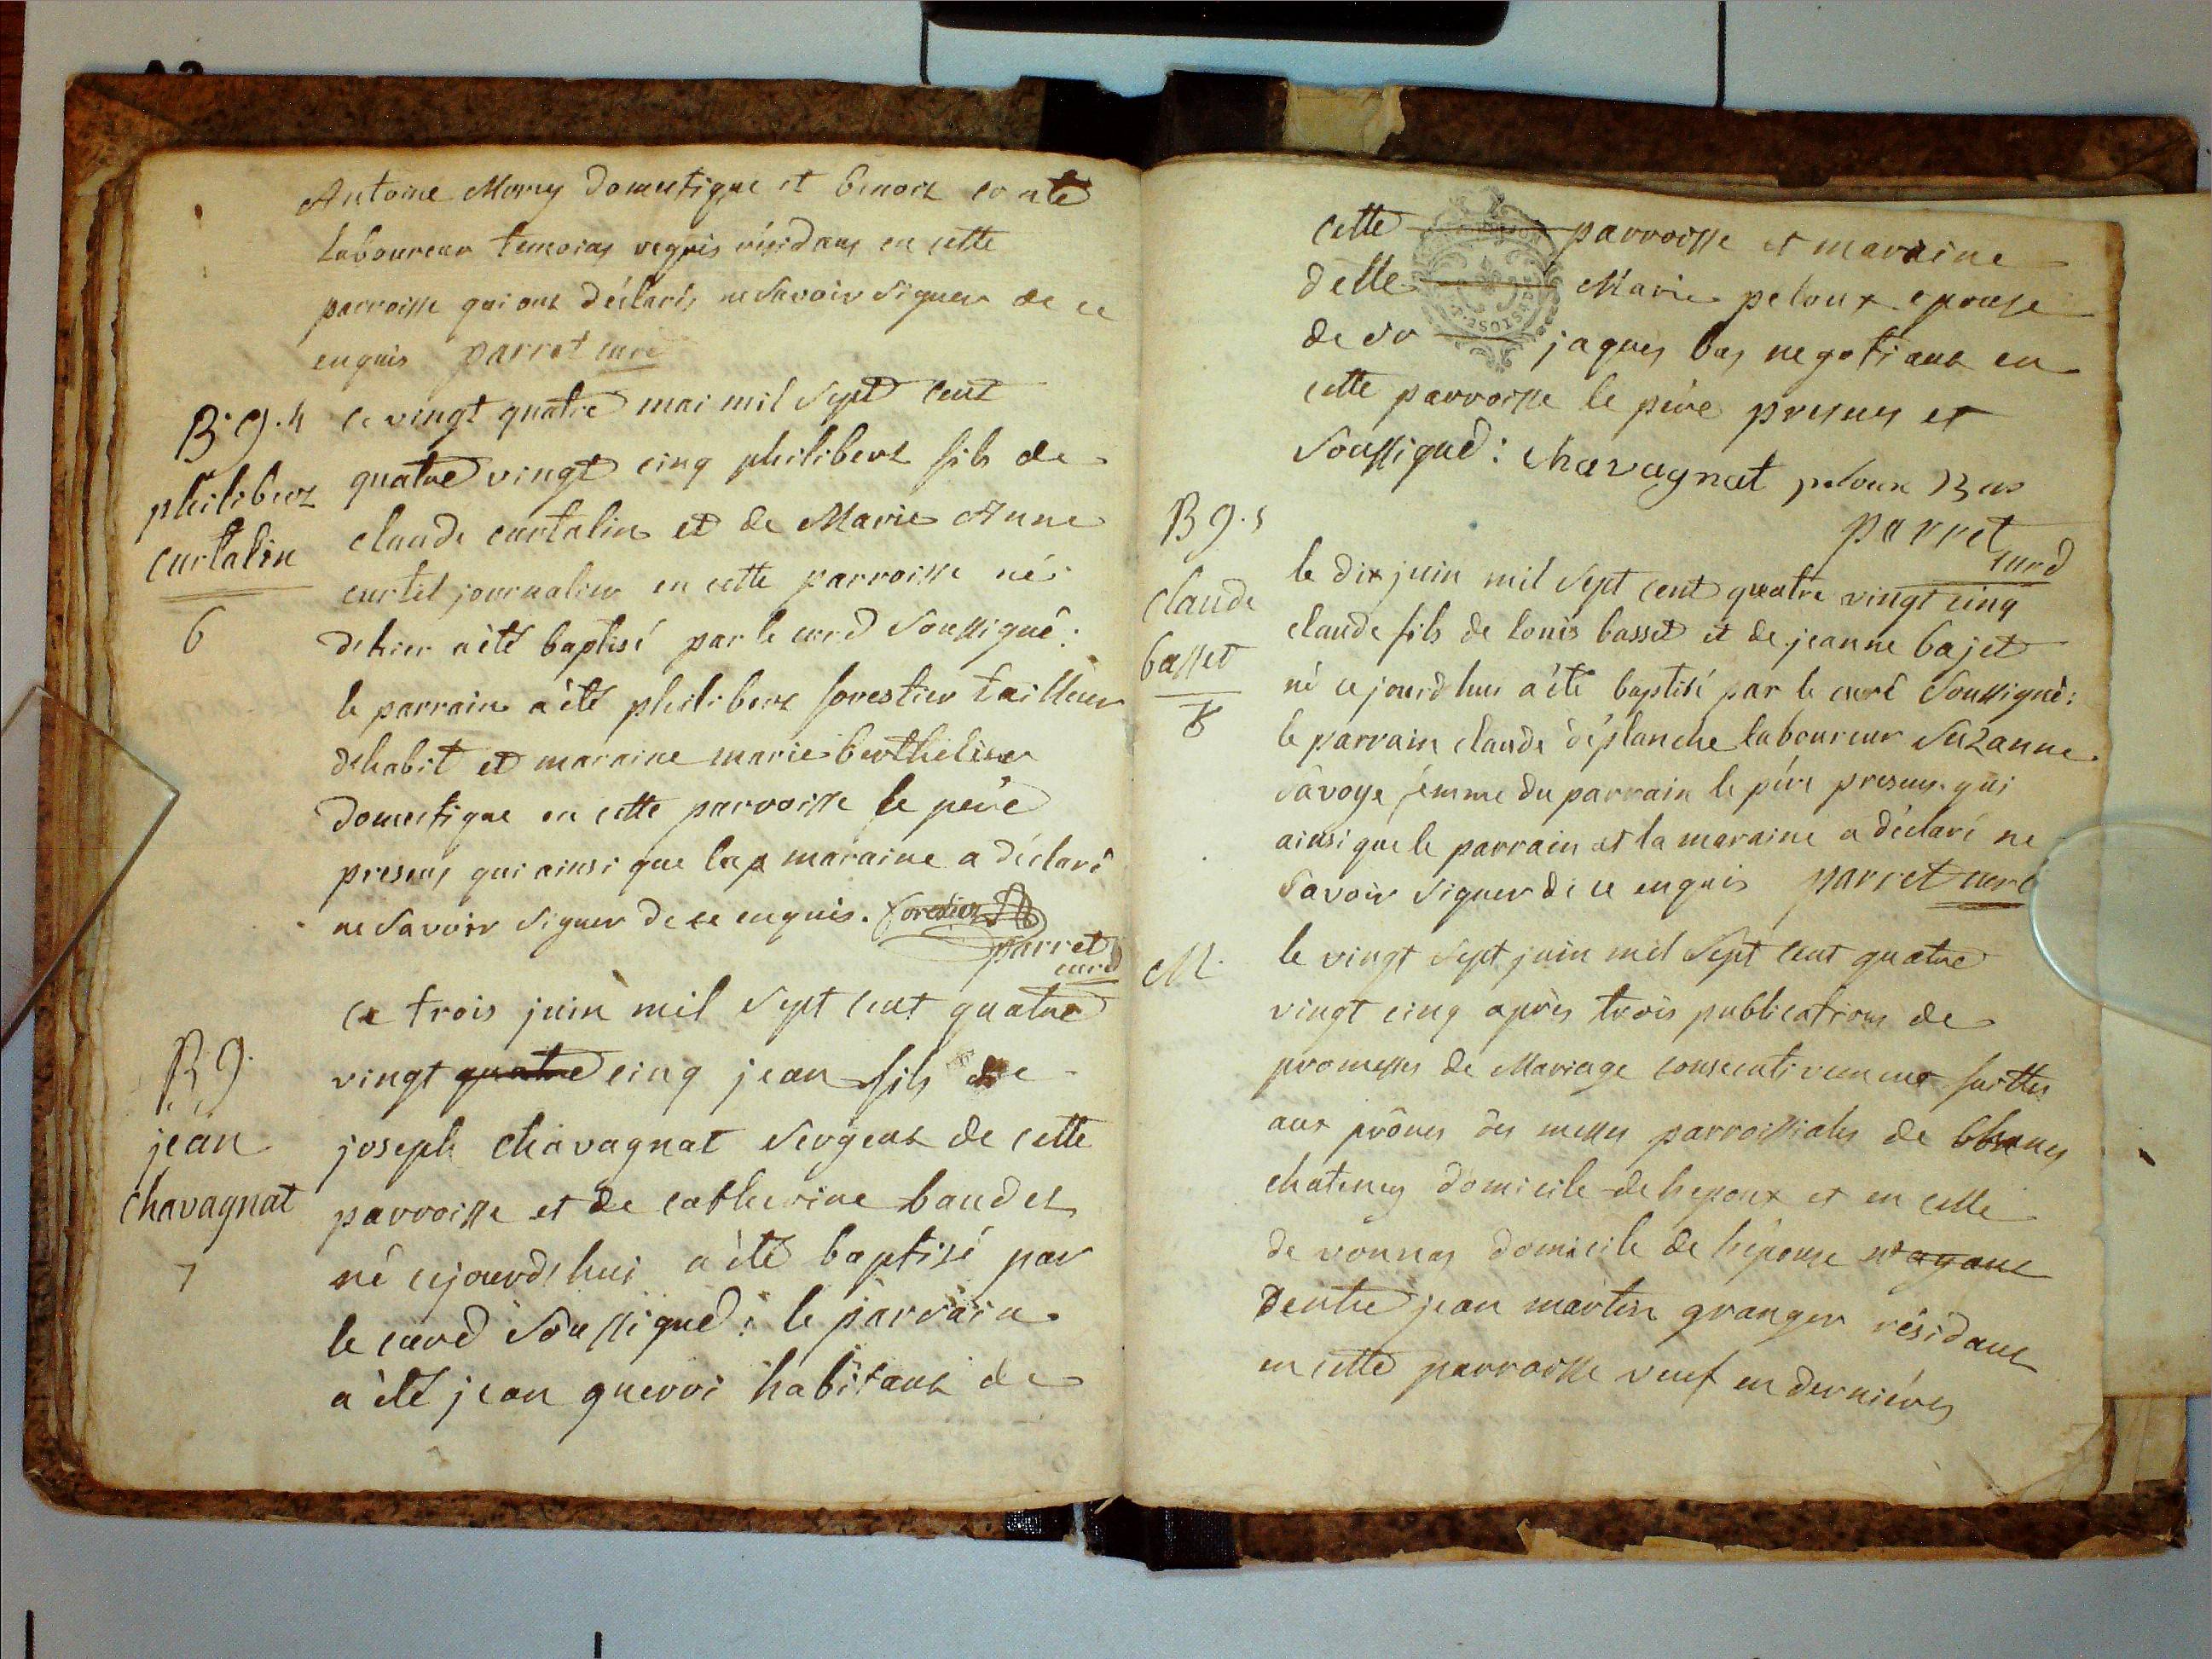 Antoine Mory domestique et benoit conte
laboureur temoins requis résidans en cette
parroisse qui ont déclarés ne savoir signer de ce
enquis parret curé
B. g. 4
philibert
curtalin
6
ce vingt quatre mai mil sept cent
quatre vingt cinq philibert fils de
claude curtalin et de Marie Anne
curtet journalier en cette parroisse né
dehier a été baptisé par le curé soussigné:
le parrain a été philibert forestier tailleur
dehabit et maraine marie berthelier
domestique en cette parroisse le pére
presens qui ainsi que la maraine a déclaré
ne savoir signer de ce enquis. forestier
parret
curé
B g.
jean
chavagnat
7
ce trois juin mil sept cent quatre
vingt quatre cinq jean fils de
joseph chavagnat sergent de cette
parroisse et de catherine baudet
né cejourd'hui a été baptisé par
le curé soussigné: le parrain
a été jean guerri habitant de
cette parroisse et maraine
delle Marie peloux epouse
de sr jaques bas negotiant en
cette parroisse le pére presens et
soussigné: Chavagnat peloux Bas
parret
curé
B g. 5
claude
basset
8
le dix juin mil sept cent quatre vingt cinq
claude fils de louis basset et de jeanne bajet
né cejourd'hui a été baptisé par le curé soussigné:
le parrain claude déplanche laboureur suzanne
savoye femme du parrain le pére presens qui
ainsi que le parrain et la maraine a déclaré ne
savoir signer de ce enquis parret curé
M.
le vingt sept juin mil sept cent quatre
vingt cinq après trois publications de
promesses de Mariage consecutivement faittes
aux prônes des messes parroissiales de
chatenay domicile de l'epoux et en celle
de vonnas domicile de l'épouse n'ayant
Dentre jean martin granger résidant
en cette parroisse veuf en derniéres